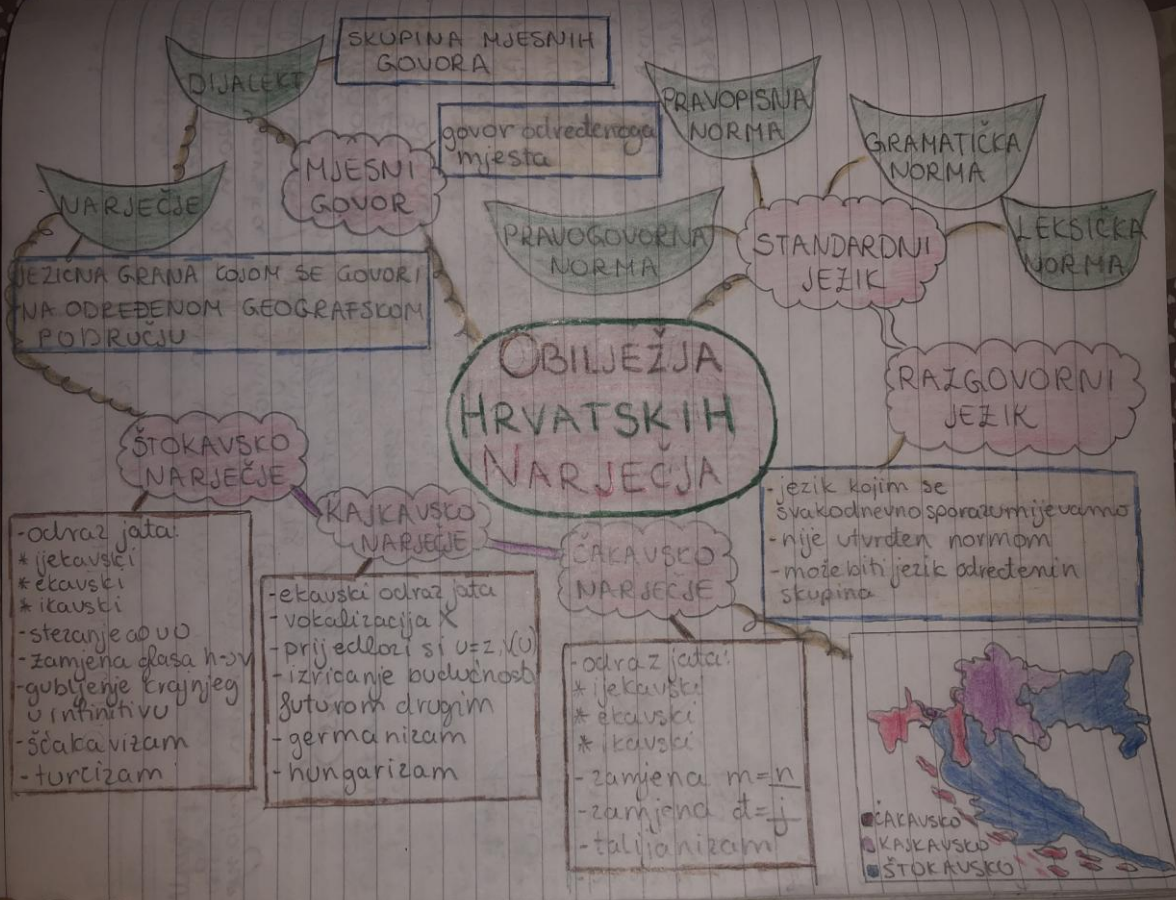 DIJALEKT
SKUPINA MJESNIH
GOVORA
MJESNI
GOVOR
govor određenoga
mjesta
NARJEČJE
JEZIČNA GRANA KOJOM SE GOVORI
NA ODREĐENOM GEOGRAFSKOM
PODRUČJU
PRAVOPISNA
NORMA
GRAMATIČKA
NORMA
PRAVOGOVORNA
NORMA
STANDARDNI
JEZIK
LEKSIČKA
NORMA
OBILJEŽJA
HRVATSKIH
NARJEČJA
RAZGOVORNI
JEZIK
-jezik kojim se
svakodnevno sporazumijevamo
-nije utvrđen normom
-može biti jezik određenin
skupina
ŠTOKAVSKO
NARJEČJE
-odraz jata:
*ijekavski
*ekavski
*ikavski
-stezanje ao u o
-zamjena glasa h->v
-gubljenje krajnjeg
u infinitivu
-šćakavizam
-turcizam
KAJKAVSKO
NARJEČJE
-ekavski odraz jata
-vokalizacija
-prijedlozi s i u=z, v(u)
-izricanje budućnosti
futurom drugim
-germanizam
-hungarizam
ČAKAVSKO
NARJEČJE
-odraz jata:
*ijekavski
*ekavski
*ikavski
-zamjena m=n
-zamjena đ=j
-talijanizam
ČAKAVSKO
KAJKAVSKO
ŠTOKAVSKO